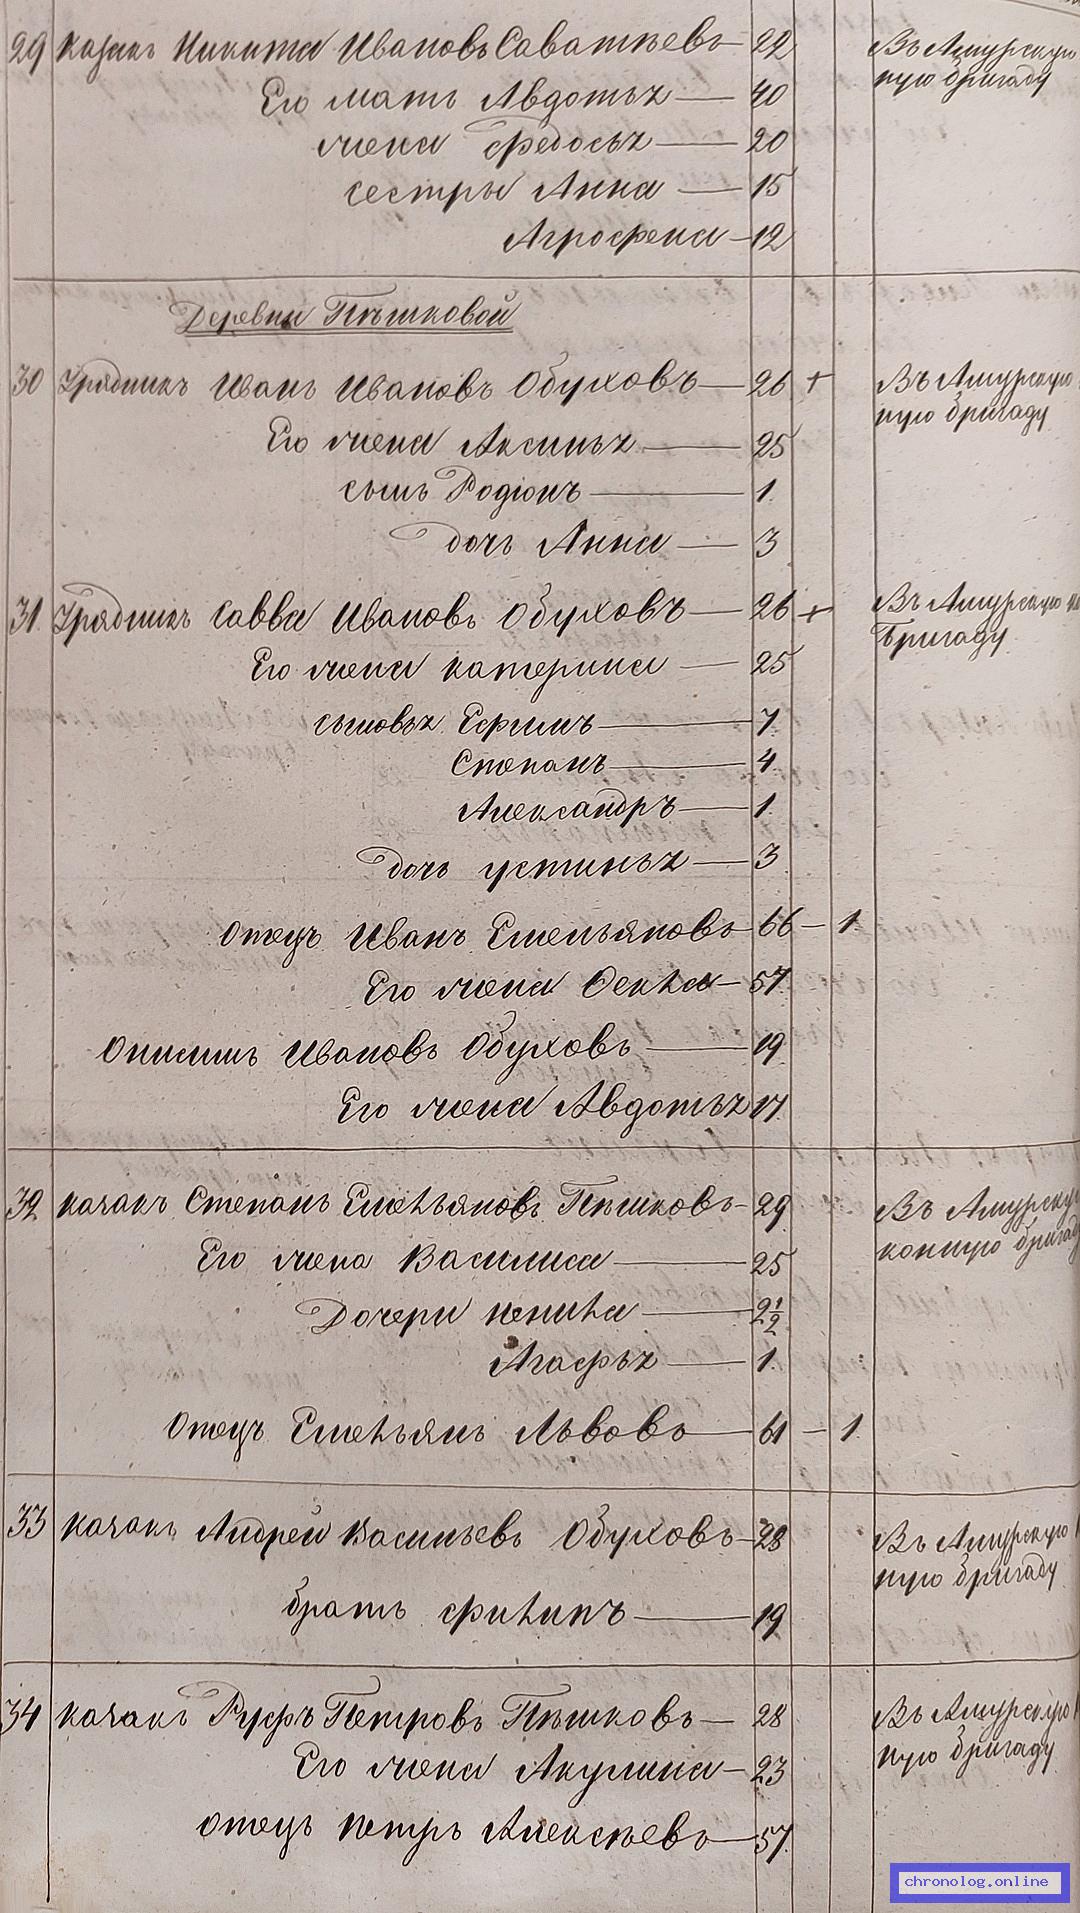 29 Казакъ Никита Ивановъ Саватѣевъ 22 Въ Амурскую
ную бригаду
Его мать Авдотья 40
жена Ѳедосья 20
сестры Анна 15
Агрофена 12
Деревни Пѣшковой
30 Урядникъ Иванъ Ивановъ Обуховъ 26 + Въ Амурскую
ную бригаду
Его жена Аксинья 25
сынъ Родіонъ 1
дочь Анна 3
31 Урядникъ Савва Ивановъ Обуховъ 26 + Въ Амурскую
бригаду
Его жена Катерина 25
сыновья Ефимъ 7
Степанъ 4
Александръ 1
дочь Устинья 3
Отецъ Иванъ Емельяновъ 66 — 1
Его жена Фекла 57
Онисимъ Ивановъ Обуховъ 19
Его жена Авдотья 17
32 Казакъ Степанъ Емельяновъ Пѣшковъ 29 Въ Амурскую
конную бригаду
Его жена Василиса 25
Дочери 2½
Агафья 1
Отецъ Емельянъ Львовъ 61 — 1
33 Казакъ Андрей Васильевъ Обуховъ 28 Въ Амурскую
ную бригаду
братъ Филипъ 19
34 Казакъ Руфъ Петровъ Пѣшковъ 28 Въ Амурскую
ную бригаду
Его жена Акулина 23
Отецъ Петръ Алексѣевъ 57
chronolog.online